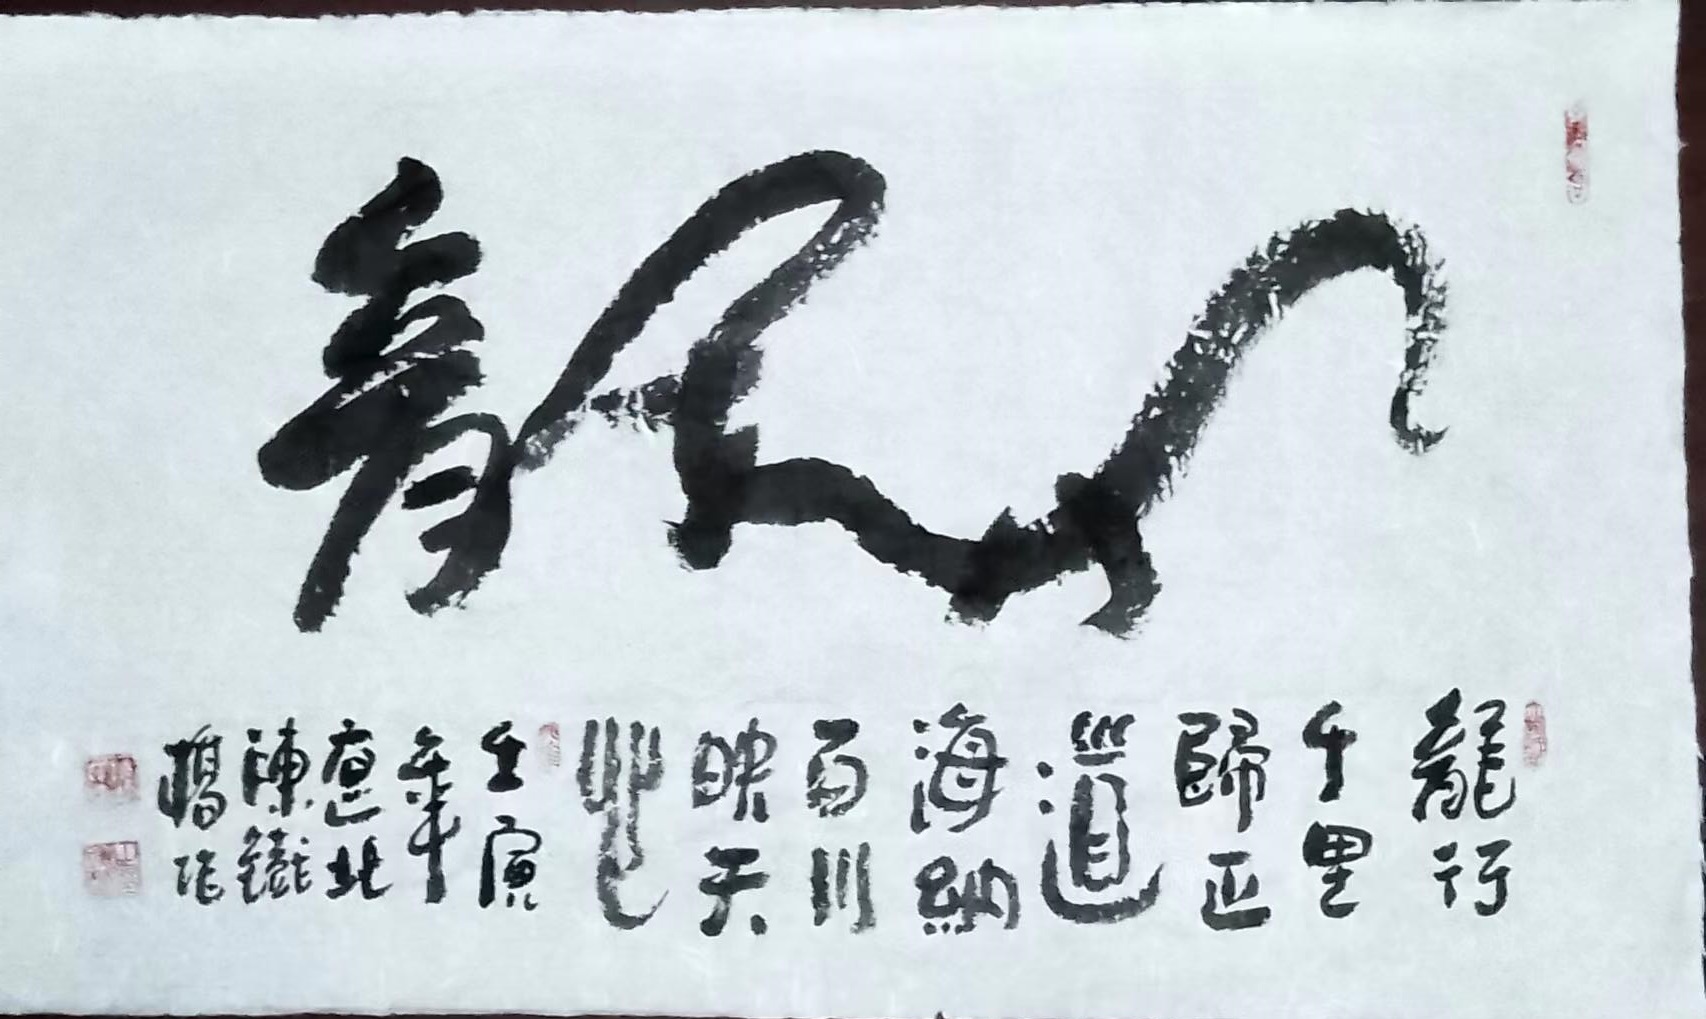 龍
龍行
千里
歸正
道
海納
百川
映天
壬寅
年
北
陳鐵
作